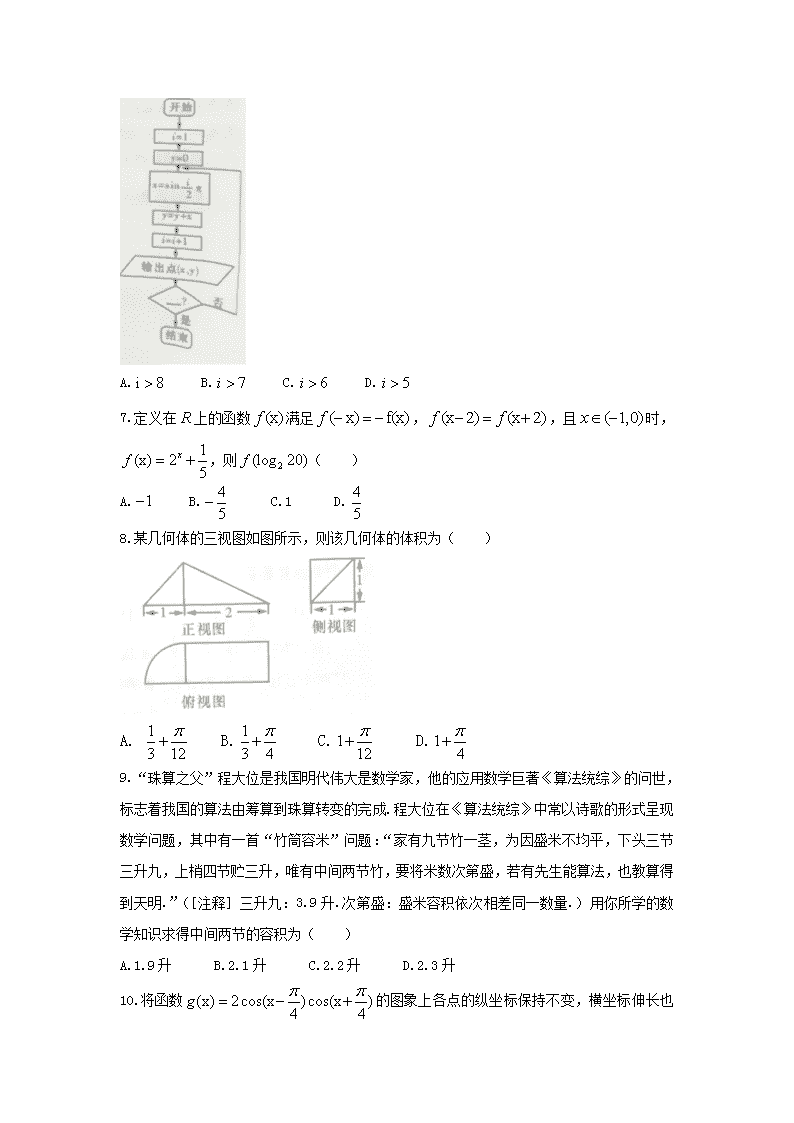 开始
i=1
y=0
x=sin i/2 π
y=y+x
i=i+1
输出点(x,y)
__?
否
是
结束
A. i > 8 B. i > 7 C. i > 6 D. i > 5
7.定义在 R 上的函数 f(x) 满足 f(− x) = − f(x) , f(x− 2) = f(x+ 2) ,且 x∈(−1,0) 时,
f(x) = 2^x + 1/5 ,则 f(log₂ 20)( )
A. −1 B. − 4/5 C.1 D. 4/5
8.某几何体的三视图如图所示,则该几何体的体积为( )
1
1 2 1
正视图 侧视图
俯视图
A. 1/3 + π/12 B. 1/3 + π/4 C. 1+ π/12 D. 1+ π/4
9.“珠算之父”程大位是我国明代伟大是数学家,他的应用数学巨著《算法统综》的问世,
标志着我国的算法由筹算到珠算转变的完成.程大位在《算法统综》中常以诗歌的形式呈现
数学问题,其中有一首“竹筒容米”问题:“家有九节竹一茎,为因盛米不均平,下头三节
三升九,上梢四节贮三升,唯有中间两节竹,要将米数次第盛,若有先生能算法,也教算得
到天明.”([注释] 三升九:3.9 升.次第盛:盛米容积依次相差同一数量.)用你所学的数
学知识求得中间两节的容积为( )
A.1.9升 B.2.1升 C.2.2升 D.2.3升
10.将函数 g(x) = 2cos(x− π/4)cos(x+ π/4) 的图象上各点的纵坐标保持不变,横坐标伸长也